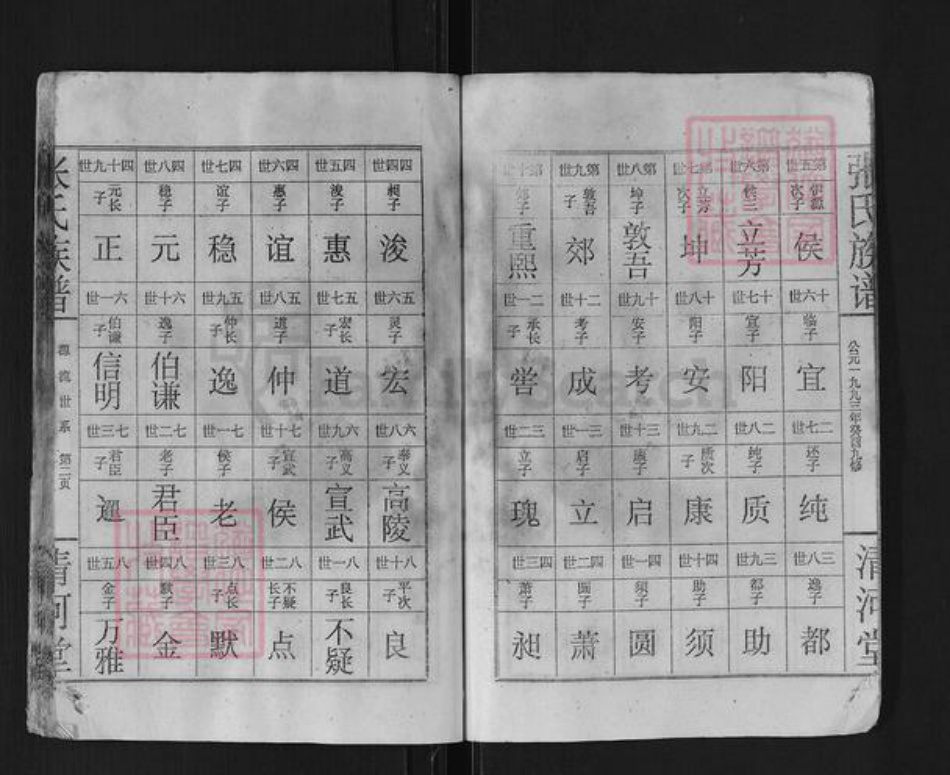 張氏族谱
公元一九九三年癸酉九修
清河堂
第五世 第六世 第七世 第八世 第九世 第十世
次子 立芳次子 坤子 敦吾子 郊子
侯 立芳 坤 敦吾 郊 重熙
十六世 十七世 十八世 十九世 二十世 二一世
临子 宜子 阳子 安子 考子 承长子
宜 阳 安 考 成 喾
二七世 二八世 二九世 三十世 三一世 三二世
还子 纯子 质次子 康子 启子 立子
纯 质 康 启 立 瑰
三八世 三九世 四十世 四一世 四二世 四三世
逸子 都子 助子 须子 圆子 萧子
都 助 须 圆 萧 昶
四四世 四五世 四六世 四七世 四八世 四十九世
昶子 浚子 惠子 谊子 稳子 元长子
浚 惠 谊 稳 元 正
五六世 五七世 五八世 五九世 六十世 六一世
灵子 宏长子 道子 仲长子 逸子 伯谦子
宏 道 仲 逸 伯谦 信明
六八世 六九世 七十世 七一世 七二世 七三世
泰义子 高义子 宣武子 侯子 老子 君臣子
高陵 宣武 侯 老 君臣 暹
八十世 八一世 八二世 八三世 八四世 八五世
平次子 良长子 不疑长子 点长子 默子 金子
良 不疑 点 默 金 万雅
张氏族谱
源流世系 第二页
清河堂